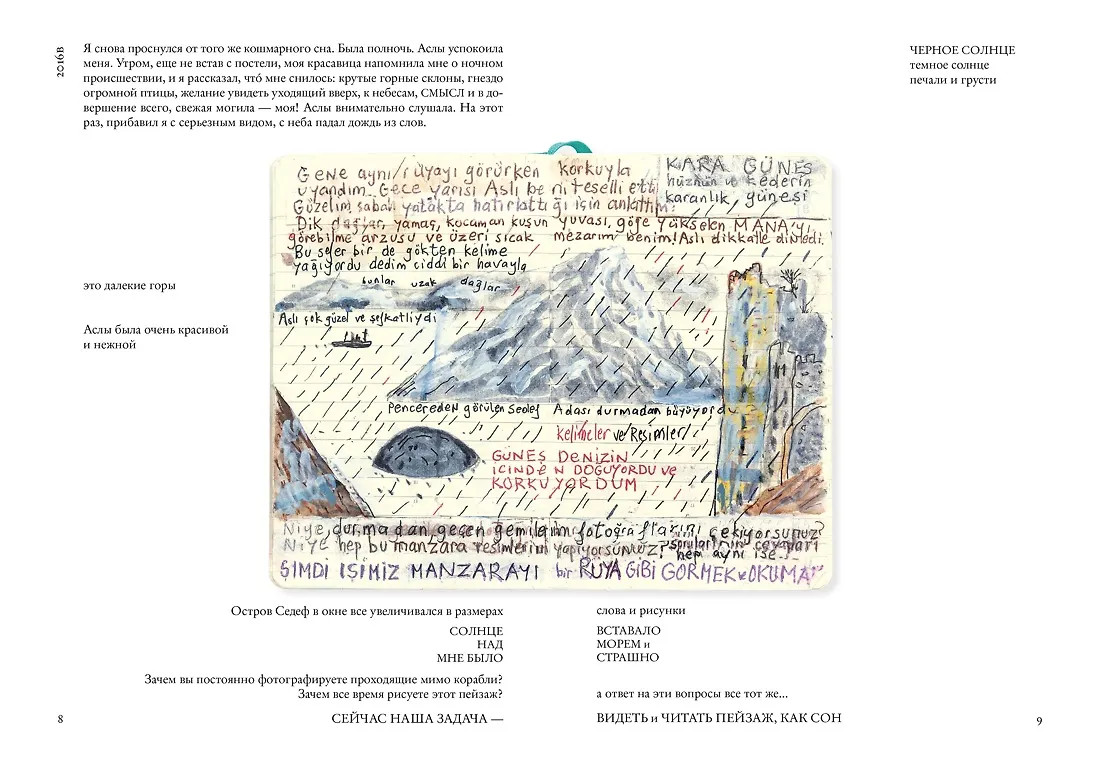 2016в
Я снова проснулся от того же кошмарного сна. Была полночь. Аслы успокоила
меня. Утром, еще не встав с постели, моя красавица напомнила мне о ночном
происшествии, и я рассказал, что́ мне снилось: крутые горные склоны, гнездо
огромной птицы, желание увидеть уходящий вверх, к небесам, СМЫСЛ и в до-
вершение всего, свежая могила — моя! Аслы внимательно слушала. На этот
раз, прибавил я с серьезным видом, с неба падал дождь из слов.
ЧЕРНОЕ СОЛНЦЕ
темное солнце
печали и грусти
Gene aynı rüyayı görürken korkuyla
uyandım. Gece yarısı Aslı beni teselli etti
Güzelim sabah yatakta hatırlattığı için anlattım:
KARA GÜNEŞ
hüznün ve kederin
karanlık, güneşi
Dik dağlar, yamaç, kocaman kuşun yuvası, göğe yükselen MANA'yı
görebilme arzusu ve üzeri sıcak mezarım benim! Aslı dikkatle dinledi.
Bu sefer bir de gökten kelime
yağıyordu dedim ciddi bir havayla
bunlar uzak dağlar
Aslı çok güzel ve şefkatliydi
это далекие горы
Аслы была очень красивой
и нежной
Pencereden görülen Sedef Adası durmadan büyüyordu
Kelimeler ve Resimler
GÜNEŞ DENİZİN
İÇİNDEN DOĞUYORDU ve
KORKUYORDUM
Niye, durmadan geçen gemilerin fotoğraflarını çekiyorsunuz?
Niye hep bu manzara resimlerini yapıyorsunuz? soruların cevapları
hep aynı ise...
ŞİMDİ İŞİMİZ MANZARAYI bir RÜYA GİBİ GÖRMEK ve OKUMAK
Остров Седеф в окне все увеличивался в размерах
слова и рисунки
СОЛНЦЕ
НАД
МНЕ БЫЛО
ВСТАВАЛО
МОРЕМ и
СТРАШНО
Зачем вы постоянно фотографируете проходящие мимо корабли?
Зачем все время рисуете этот пейзаж?
а ответ на эти вопросы все тот же...
8
СЕЙЧАС НАША ЗАДАЧА —
ВИДЕТЬ и ЧИТАТЬ ПЕЙЗАЖ, КАК СОН
9